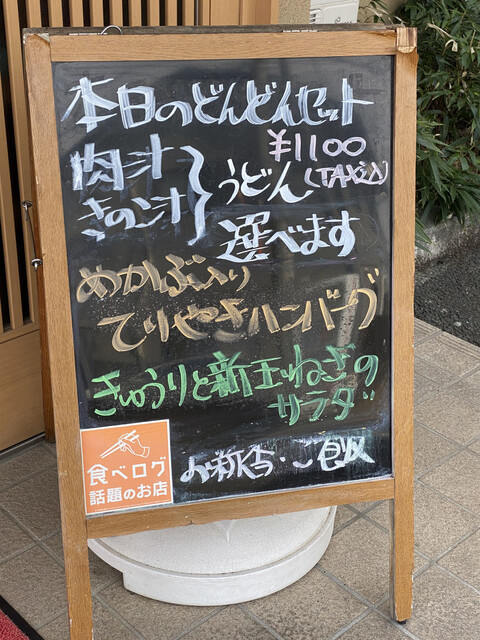 本日のどんどんセット
¥1100
(TAX込)
肉汁
きのこ汁
うどん
選べます
めかぶ入り
てりやきハンバーグ
きゅうりと新玉ねぎの
サラダ
お新香・ご飯
食べログ
話題のお店